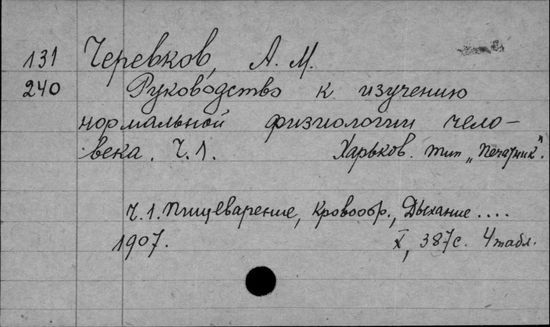 131 Черевков, А. М.
240 Руководство к изучению
нормальной физиологии чело-
века. Ч. 1. Харьков. тип „Печатник".
Ч. 1. Пищеварение, кровообр., Дыхание ....
1907. X, 387 с. 4 табл.